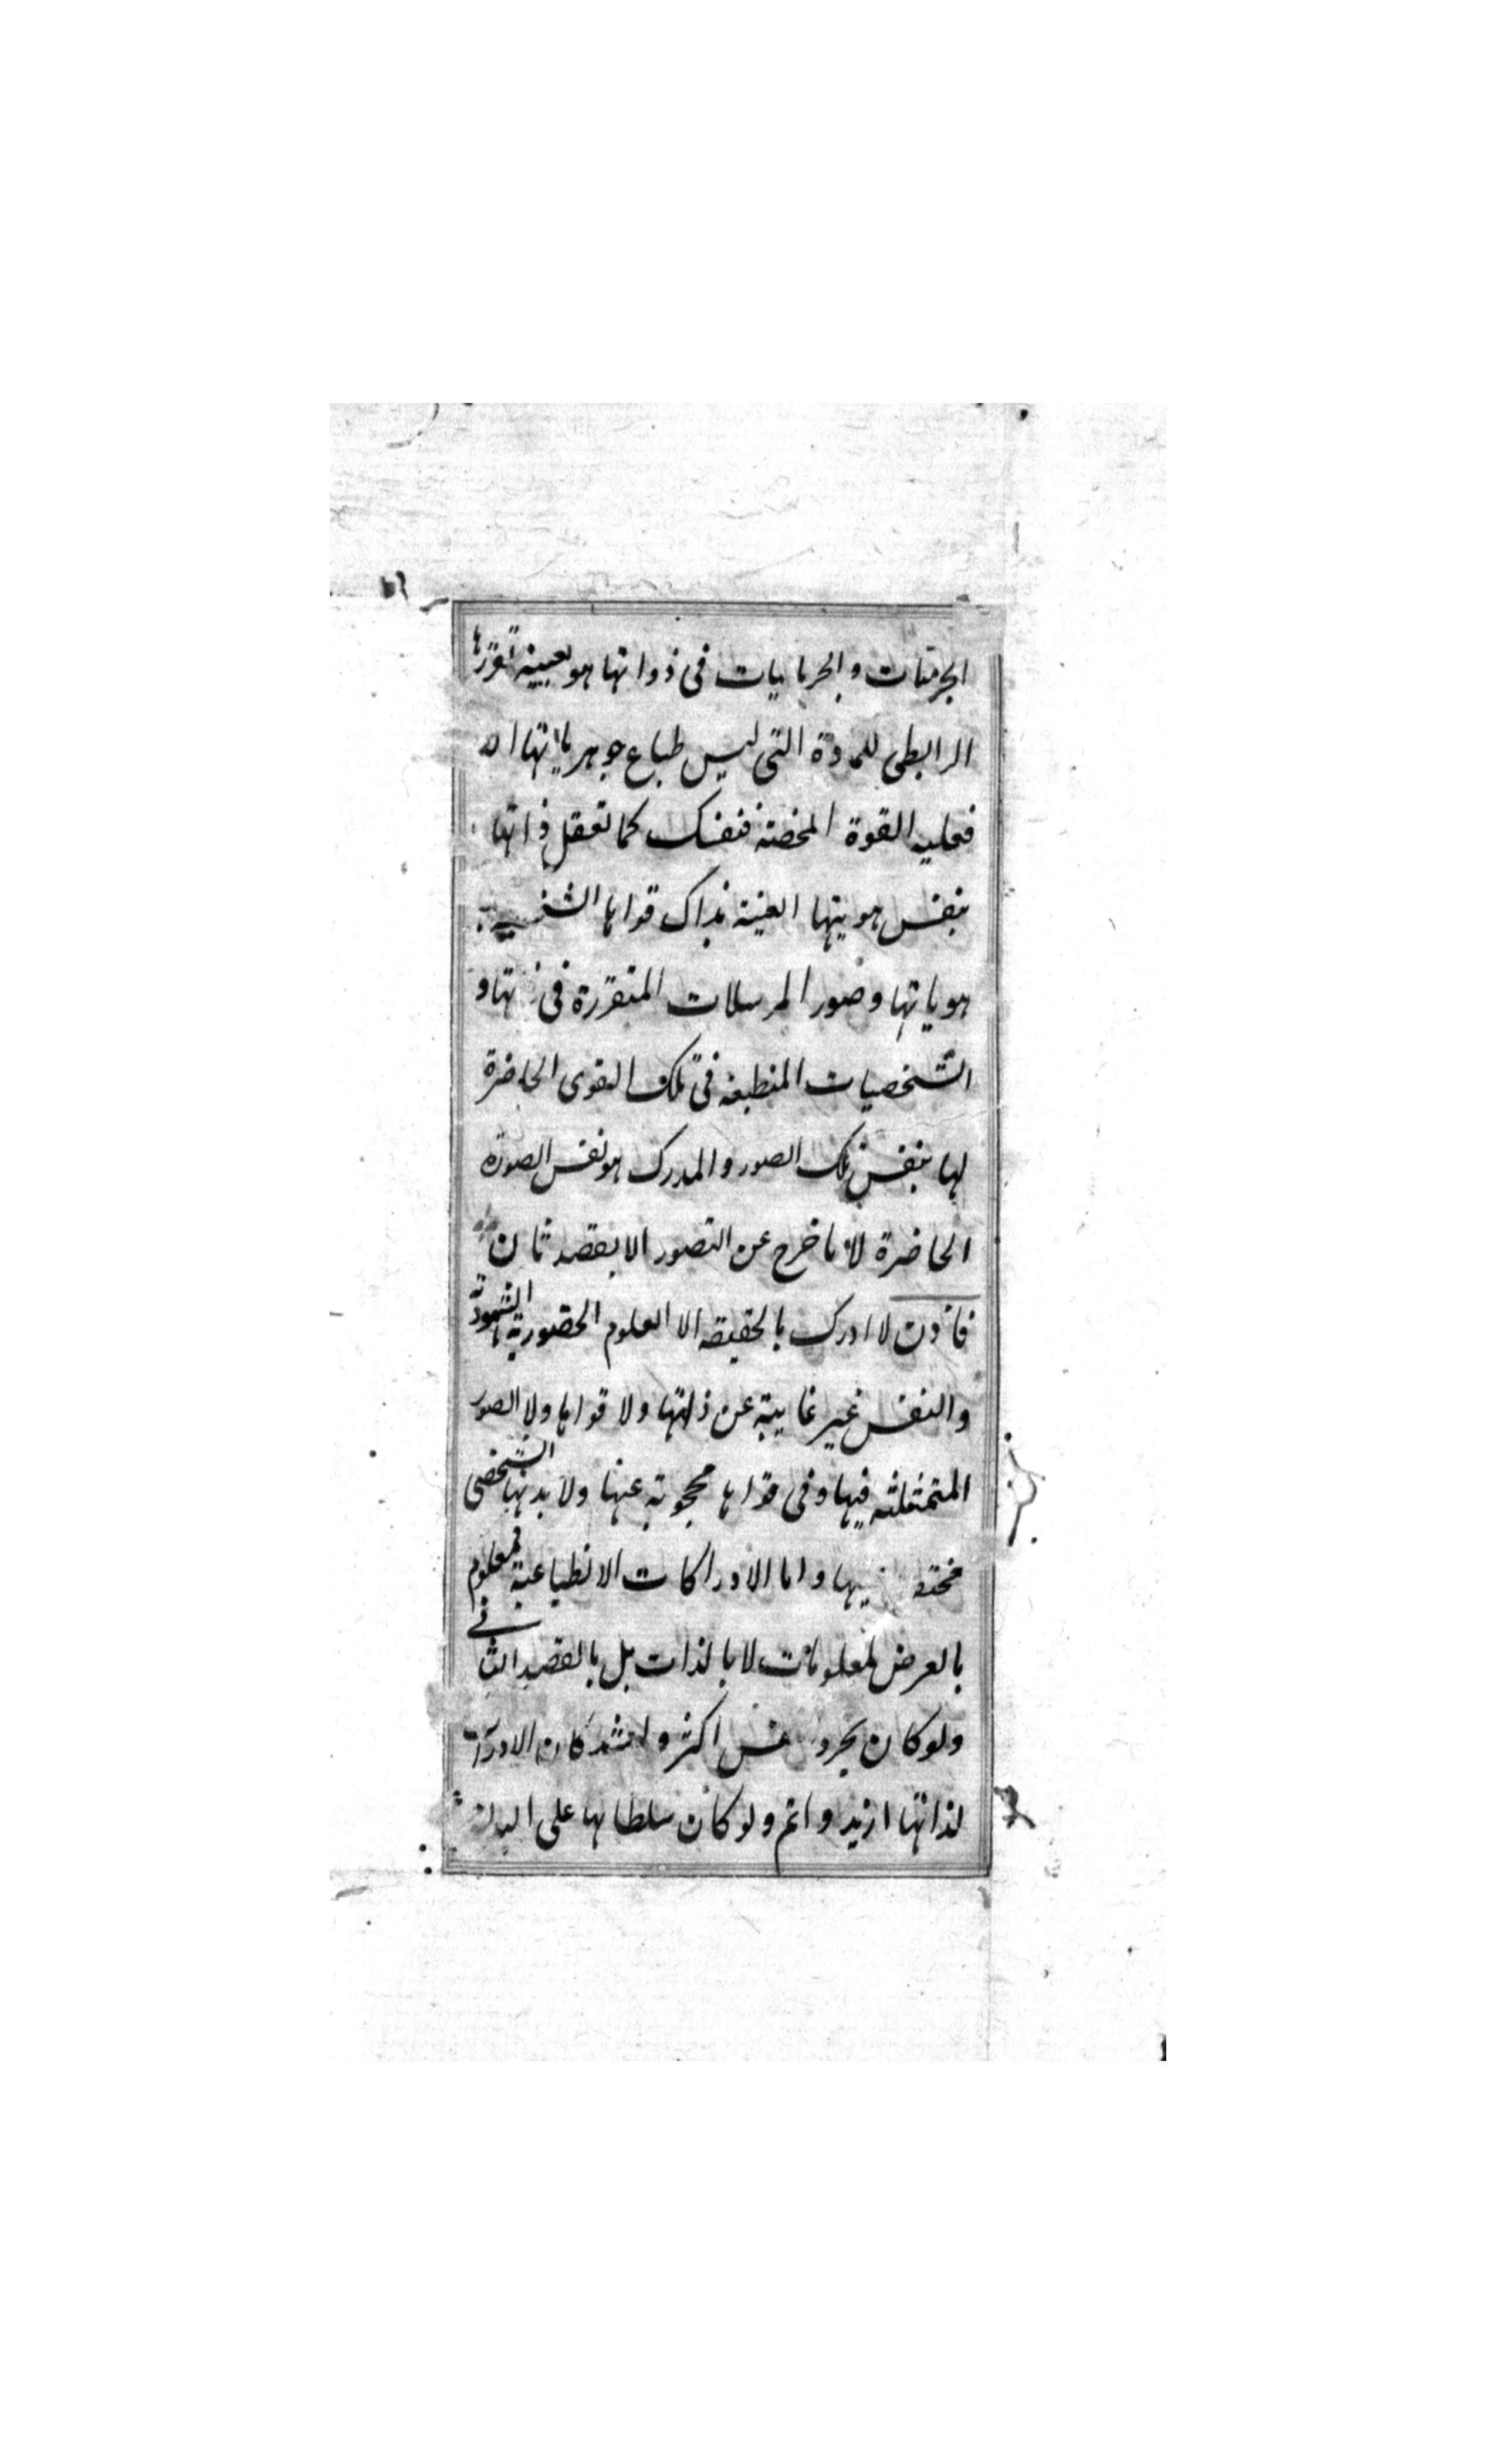 الجرميات والجرمانيات فى ذواتها هو بعينه تقررها
الرابطى للمادة التى ليس طباع جوهرياتها الا
فعليه القوة المحضة فنفسك كما تعقل ذاتها
بنفس هويتها العينية تدرك قواها
هوياتها وصور المرسلات المتقررة فى و
الشخصيات المنطبعة فى تلك القوى الحاضرة
لها بنفس تلك الصور والمدرك هو نفس الصورة
الحاضرة لا ما خرج عن التصور الا بقصد ثان
فاذن لا ادراك بالحقيقة الا العلوم الحضورية الشهودية
والنفس غير غايبة عن ذاتها ولا قواها ولا الصور
المتمثلة فيها وفى قواها محجوبة عنها ولا بدنها الشخصى
مختف واما الادراكات الانطباعية فمعلوم
بالعرض لمعلومات لا بالذات بل بالقصد الثانى
ولو كان تجرد اكثر واشد كان الادراك
لذاتها ازيد واتم ولو كان سلطانها على البدن